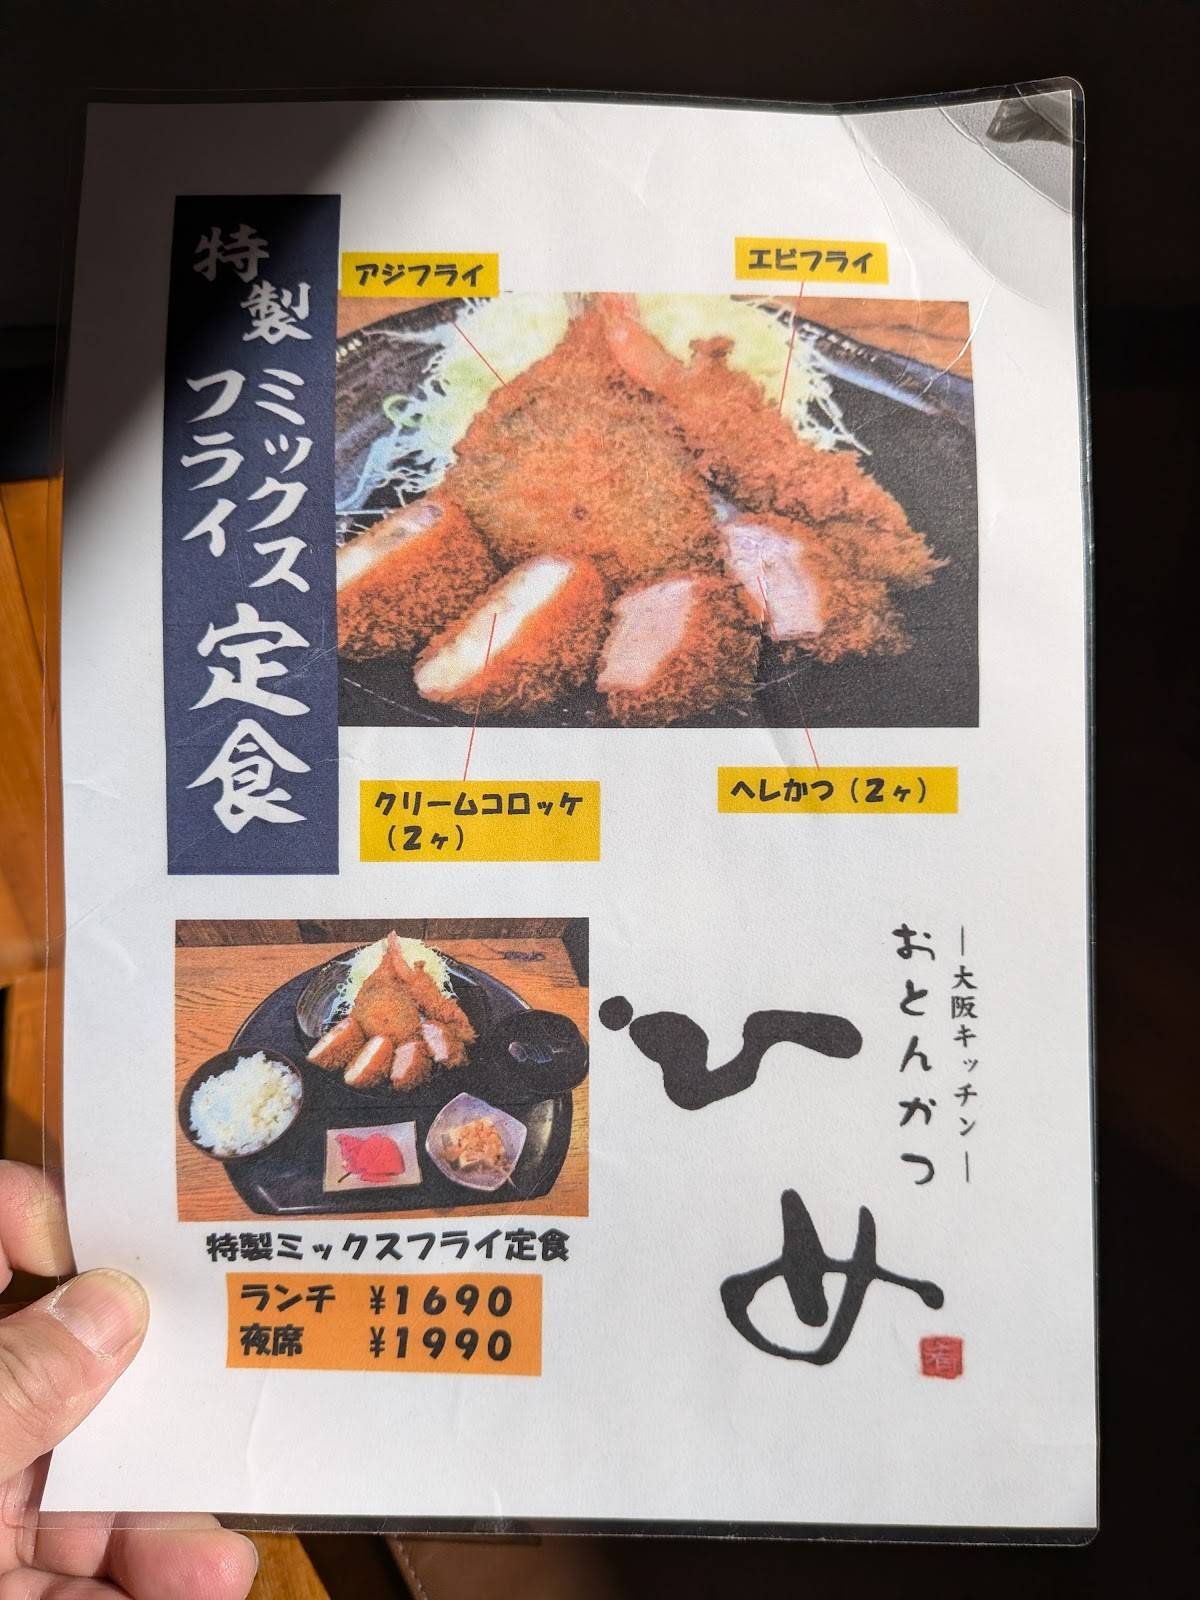 特製
ミックス
フライ
定食
アジフライ
エビフライ
クリームコロッケ
(2ヶ)
ヘレかつ(2ヶ)
ー大阪キッチンー
おとんかつ
ひめ
特製ミックスフライ定食
ランチ ¥1690
夜席 ¥1990